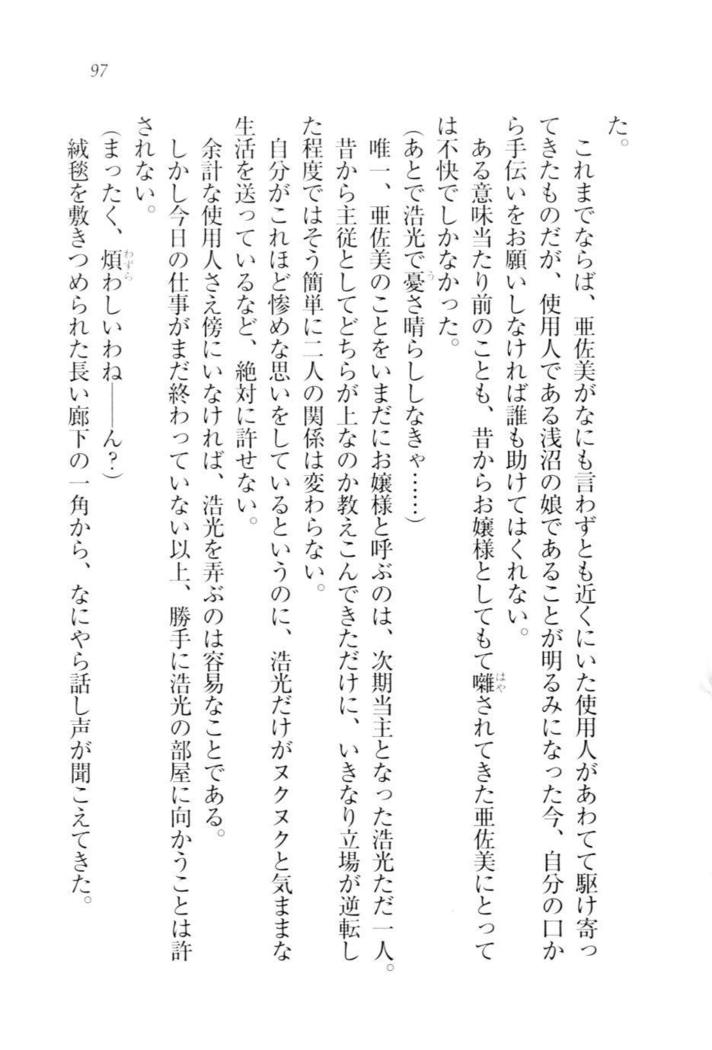 97
た。
これまでならば、亜佐美がなにも言わずとも近くにいた使用人があわてて駆け寄っ
てきたものだが、使用人である浅沼の娘であることが明るみになった今、自分の口か
ら手伝いをお願いしなければ誰も助けてはくれない。
ある意味当たり前のことも、昔からお嬢様としてもて囃されてきた亜佐美にとって
は不快でしかなかった。
(あとで浩光で憂さ晴らししなきゃ……)
唯一、亜佐美のことをいまだにお嬢様と呼ぶのは、次期当主となった浩光ただ一人。
昔から主従としてどちらが上なのか教えこんできただけに、いきなり立場が逆転し
た程度ではそう簡単に二人の関係は変わらない。
自分がこれほど惨めな思いをしているというのに、浩光だけがヌクヌクと気ままな
生活を送っているなど、絶対に許せない。
余計な使用人さえ傍にいなければ、浩光を弄ぶのは容易なことである。
しかし今日の仕事がまだ終わっていない以上、勝手に浩光の部屋に向かうことは許
されない。
(まったく、煩わしいわね――ん?)
絨毯を敷きつめられた長い廊下の一角から、なにやら話し声が聞こえてきた。